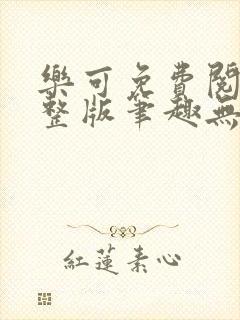 樂可免費閱
整版筆趣無
紅蓮素心